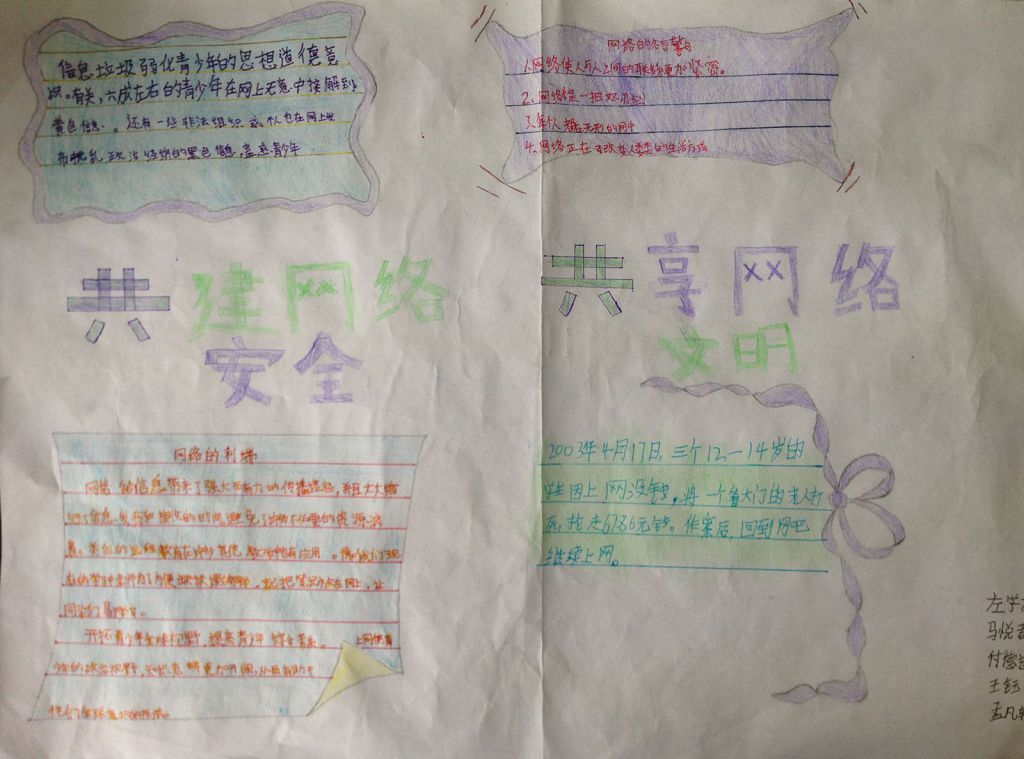 信息垃圾弱化青少年的思想道德意
识。有关,六成左右的青少年在网上无意中接解到
黄色信息。还有一些非法组织或个人也在网上发
布扰乱政治经济的黑色信息,蛊惑青少年
网络的名言警句
1、网络使人与人之间的联络更加紧密。
2、网络是一把双刃剑
3、每个人都在无形的网中
4、网络正在改变人类的生活方式
共建网络
安全
共享网络
文明
网络的利弊
网络给信息带来了强大而有力的传播途径,并且大大缩
短了信息发布和接收的时间避免了许多不必要的资源浪
同学们易学习。
开拓青少年全球视野,提高青少年综合素质。上网使青
少年的政治视野,知识范畴更加开阔,从而有助于
他们全球意识的形成。
2003年4月17日,三个12—14岁的
学生因上网没钱,将一个看大门的老人打
死,抢走6786元钱。作案后,回到网吧
继续上网。
左学
马悦
付德
王钰
孟凡